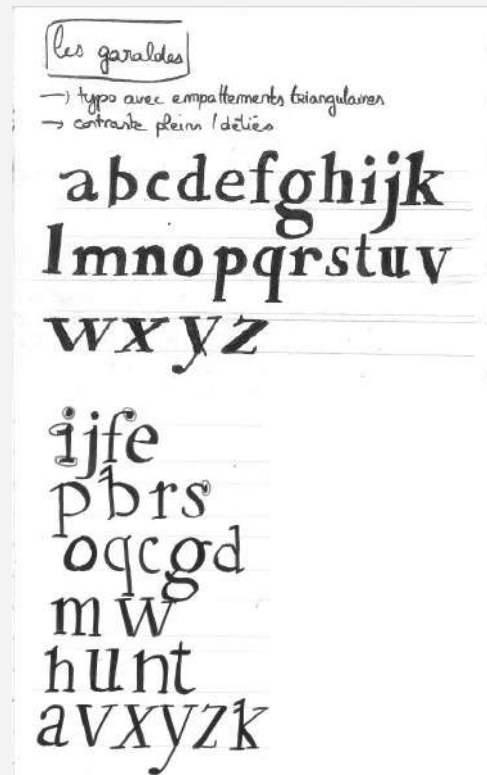 les garaldes
→ typo avec empattements triangulaires
→ contraste pleins / déliés
abcdefghijk
lmnopqrstuv
wxyz
ijfe
pbrs
oqcgd
mw
hunt
avxyzk